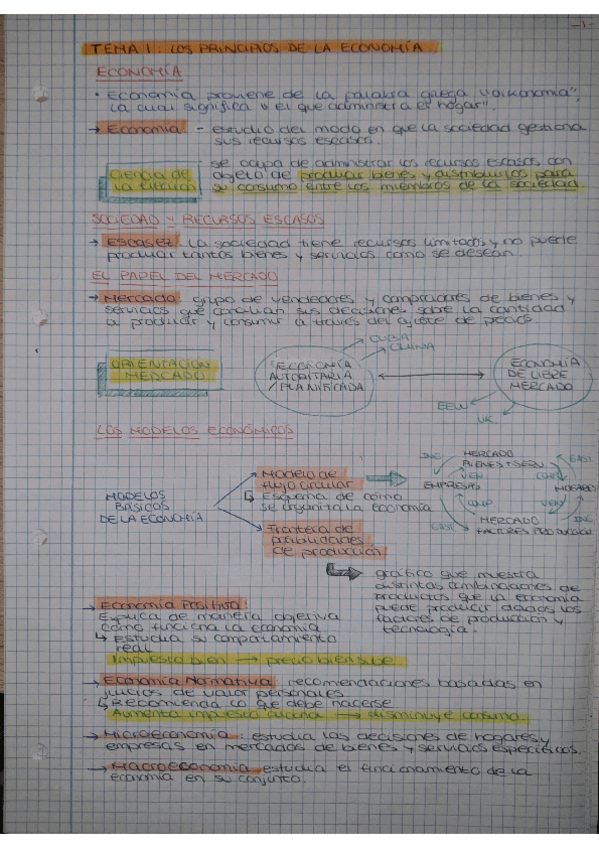 -1-
TEMA 1: LOS PRINCIPIOS DE LA ECONOMÍA
ECONOMÍA
• Economía proviene de la palabra griega "oikonomia",
la cual significa "el que administra el hogar".
→ Economía: - estudio del modo en que la sociedad gestiona
sus recursos escasos.
Ciencia de
la Elección
- se ocupa de administrar los recursos escasos con
objeto de producir bienes y distribuirlos para
su consumo entre los miembros de la sociedad.
SOCIEDAD Y RECURSOS ESCASOS
→ Escasez: La sociedad tiene recursos limitados y no puede
producir tantos bienes y servicios como se desean.
EL PAPEL DEL MERCADO
→ Mercado: grupo de vendedores y compradores de bienes y
servicios que sus decisiones sobre la cantidad
a producir y consumir a través del ajuste de precios.
ORIENTACIÓN
MERCADO
ECONOMÍA
AUTORITARIA
/ PLANIFICADA
CUBA
CHINA
ECONOMÍA
DE LIBRE
MERCADO
EEUU
UK
LOS MODELOS ECONÓMICOS
MODELOS
BÁSICOS
DE LA ECONOMÍA
→ Modelo de
flujo circular
↳ Esquema de cómo
se organiza la economía
→ Frontera de
posibilidades
de producción
MERCADO
BIENES Y SERV.
EMPRESAS
HOGARES
MERCADO
FACTORES PRODUCCIÓN
ING
VEN
COMP
GAST
GAST
COMP
VEN
ING
gráfico que muestra
distintas combinaciones de
productos que la economía
puede producir dados los
factores de producción y
tecnología.
→ Economía Positiva:
Explica de manera objetiva
como funciona la economía
↳ Estudia su comportamiento
real
Impuesto bien → precio bien sube
→ Economía Normativa: recomendaciones basadas en
juicios de valor personales.
↳ Recomienda lo que debe hacerse.
Aumenta impuesto → disminuye consumo.
→ Microeconomía: estudia las decisiones de hogares y
empresas en mercados de bienes y servicios específicos.
→ Macroeconomía: estudia el funcionamiento de la
economía en su conjunto.